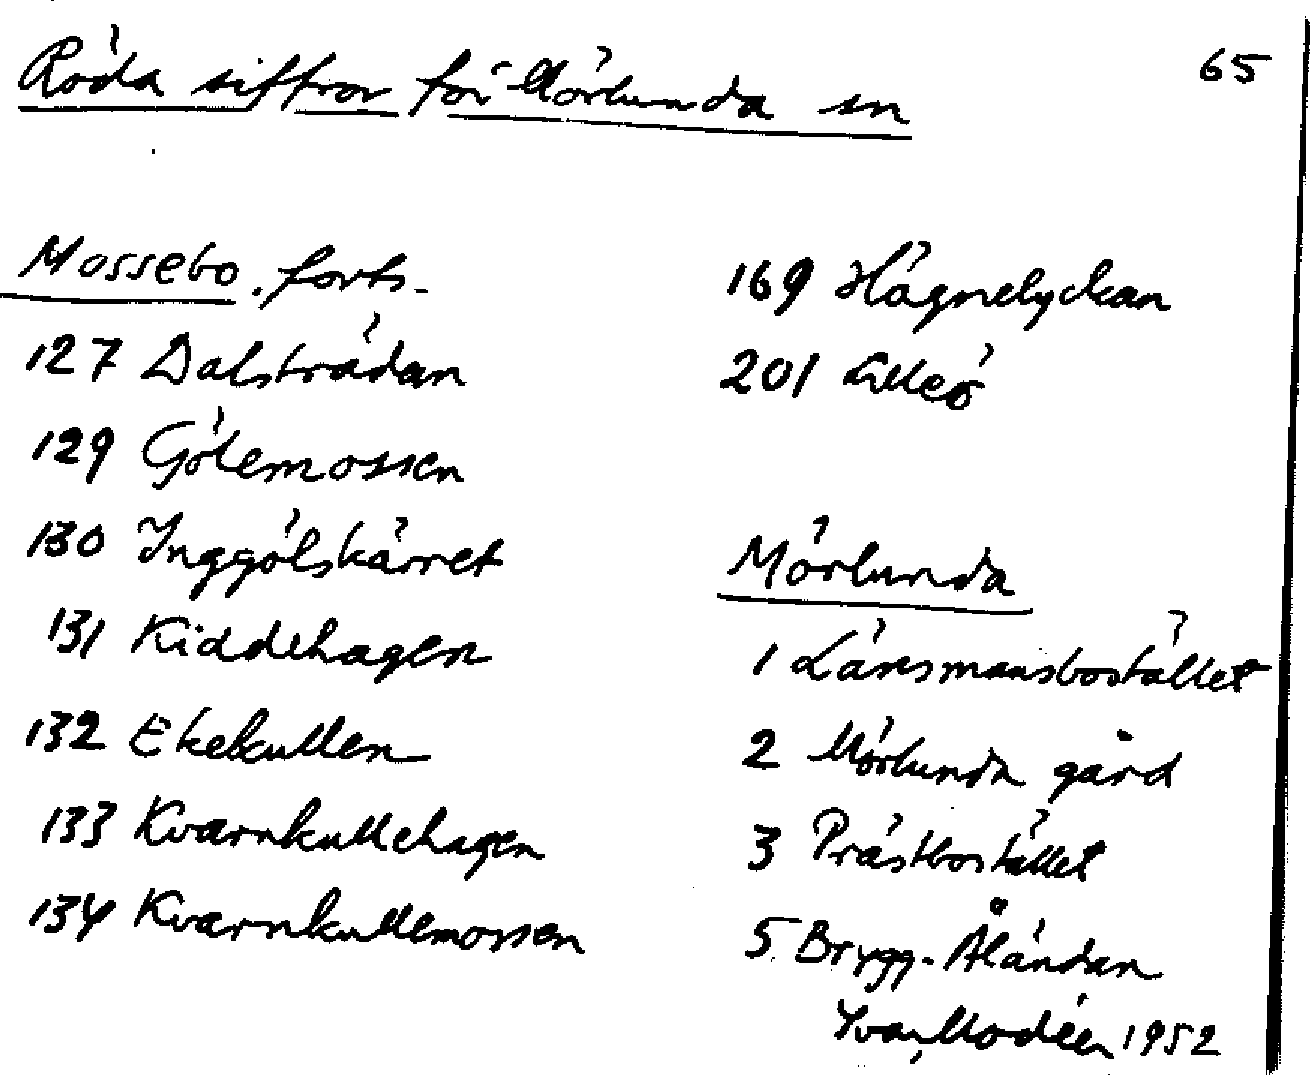 Röda siffror för Mörlunda sn
65
Mossebo. forts.
127 Dalsträdan
129 Gölemossen
130 Inggölskärret
131 Kiddehagen
132 Ekekullen
133 Kvarnkullehagen
134 Kvarnkullemossen
169 Hägnelyckan
201 Lilleö
Mörlunda
1 Länsmansbostället
2 Mörlunda gård
3 Prästbostället
5 Brygg-Åländan
Yvar Modéer 1952